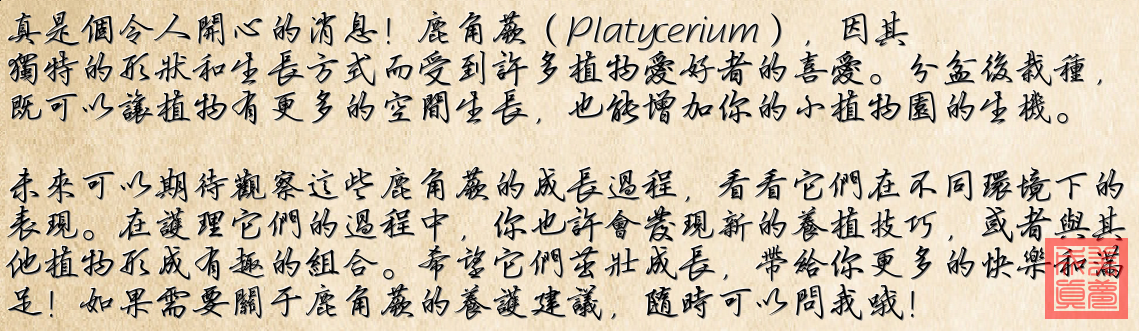 真是個令人開心的消息！鹿角蕨（Platycerium），因其
獨特的形狀和生長方式而受到許多植物愛好者的喜愛。分盆後栽種，
既可以讓植物有更多的空間生長，也能增加你的小植物園的生機。
未來可以期待觀察這些鹿角蕨的成長過程，看看它們在不同環境下的
表現。在護理它們的過程中，你也許會發現新的養植技巧，或者與其
他植物形成有趣的組合。希望它們茁壯成長，帶給你更多的快樂和滿
足！如果需要關于鹿角蕨的養護建議，隨時可以問我哦！